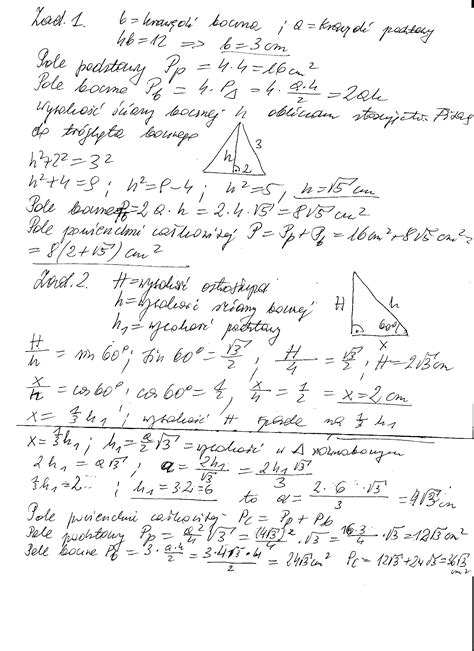 Zad. 1. b = krawędź boczna ; a = krawędź podstawy
4b = 12 => b = 3 cm
Pole podstawy Pp = 4 · 4 = 16 cm²
Pole boczne Pb = 4 · P△ = 4 · a·h/2 = 2ah
wysokość ściany bocznej h obliczam stosując tw. Pitag
do trójkąta bocznego
h 3 2
h² + 2² = 3²
h² + 4 = 9 ; h² = 9 - 4 ; h² = 5 , h = √5 cm
Pole boczne Pb = 2a · h = 2 · 4 · √5 = 8√5 cm²
Pole powierzchni całkowitej P = Pp + Pb = 16 cm² + 8√5 cm² =
= 8(2 + √5) cm²
Zad. 2. H = wysokość ostrosłupa
h = wysokość ściany bocznej
h₁ = wysokość podstawy
H h 60° x
H/h = sin 60° ; sin 60° = √3/2 ; H/4 = √3/2 ; H = 2√3 cm
x/h = cos 60° ; cos 60° = 1/2 , x/4 = 1/2 = x = 2 cm
x = 1/3 h₁ ; wysokość H spada na 1/3 h₁
x = 1/3 h₁ ; h₁ = a/2 √3 = wysokość w △ równobocznym
2h₁ = a√3 ; a = 2h₁/√3 = 2h₁√3/3
1/3 h₁ = 2 ; h₁ = 3·2 = 6 to a = 2 · 6 · √3/3 = 4√3 cm
Pole powierzchni całkowitej Pc = Pp + Pb
Pole podstawy Pp = a²/4 √3 = (4√3)²/4 · √3 = 16·3/4 · √3 = 12√3 cm²
Pole boczne Pb = 3 · a·h/2 = 3·4√3·4/2 = 24√3 cm² Pc = 12√3 + 24√3 = 36√3 cm²